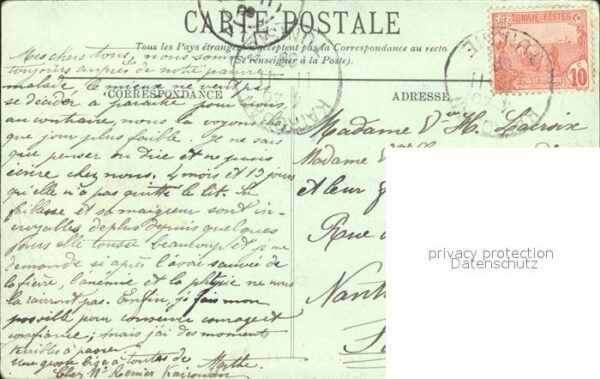 CARTE POSTALE
Tous les Pays étrangers n'acceptent pas la Correspondance au recto.
(Se renseigner à la Poste).
CORRESPONDANCE
ADRESSE
TUNISIE POSTES
10
KAIROUAN
Mes chers tous, nous sommes
toujours auprès de notre pauvre
malade, le mieux ne veut pas
se décider à paraître pour nous,
au contraire, nous la voyons de
que jour plus faible. Je ne sais
que penser ou Dire et ne puis
écrire chez nous. 4 mois et 13 jours
qu'elle n'a pas quitté le lit. Sa
faiblesse et sa maigreur sont in-
croyables, de plus depuis quelques
jours elle tousse beaucoup et je me
demande si après l'avoir sauvée de
la fièvre, l'anémie et la phtisie ne nous
la raviront pas. Enfin, je fais mon
possible pour conserver courage et
confiance; mais j'ai des moments
terribles à passer
Une grosse bise à toutes de Marthe.
Chez Mr Kairouan
Madame Vve H. Lacroix
Madame
et leur
Rue
Nant
privacy protection
Datenschutz